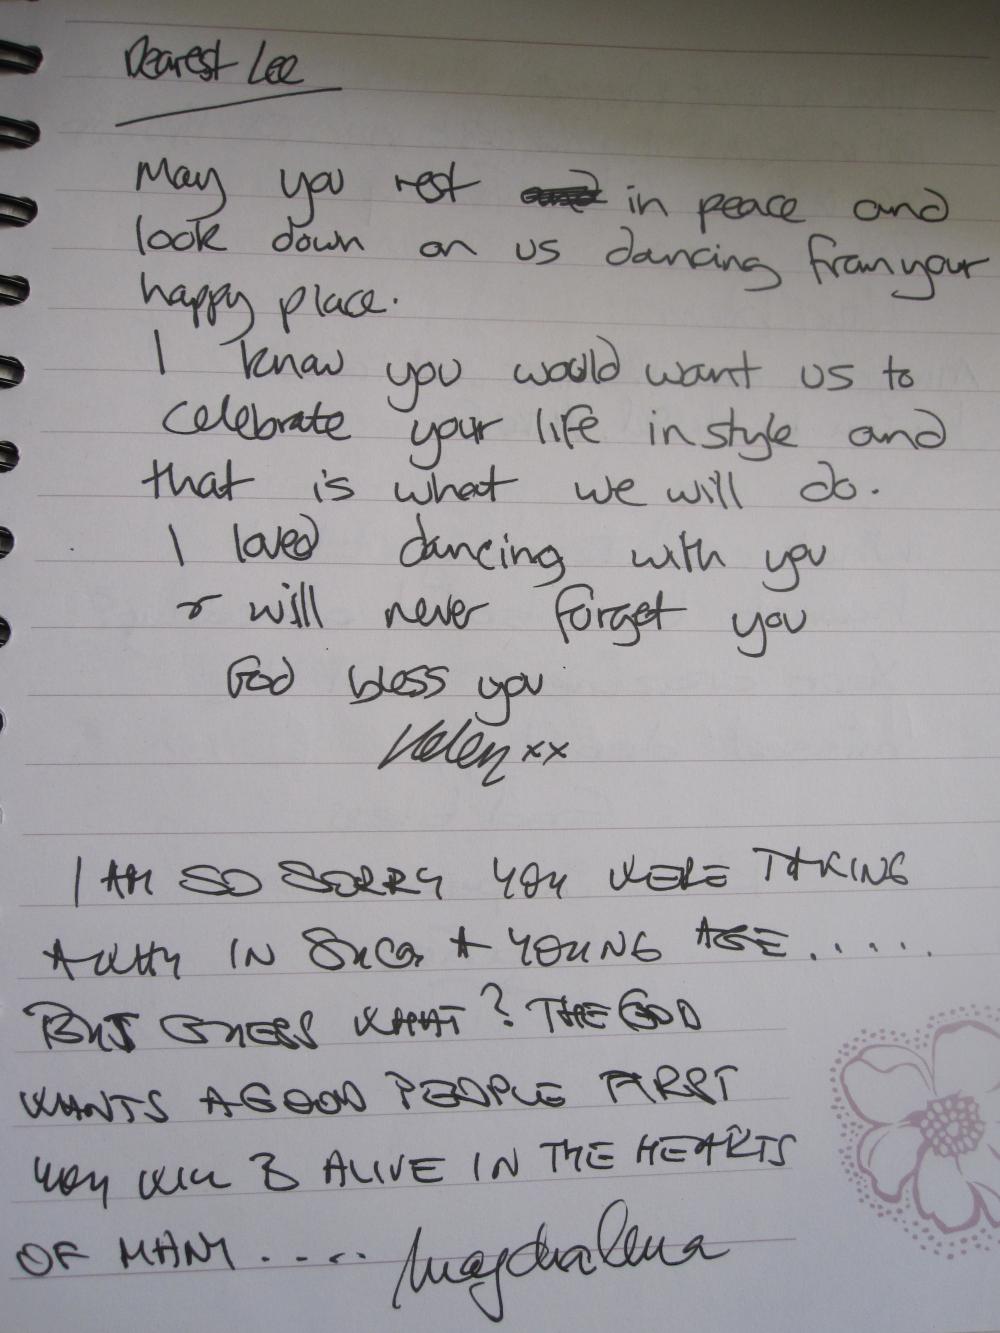 Dearest Lee
May you rest in peace and
look down on us dancing from your
happy place.
I know you would want us to
celebrate your life in style and
that is what we will do.
I loved dancing with you
& will never forget you
God bless you
Helen xx
I AM SO SORRY YOU WERE TAKING
AWAY IN SUCH A YOUNG AGE.....
BUT GUESS WHAT? THE GOD
WANTS A GOOD PEOPLE FIRST
YOU WILL B ALIVE IN THE HEARTS
OF MANY..... Magdalena